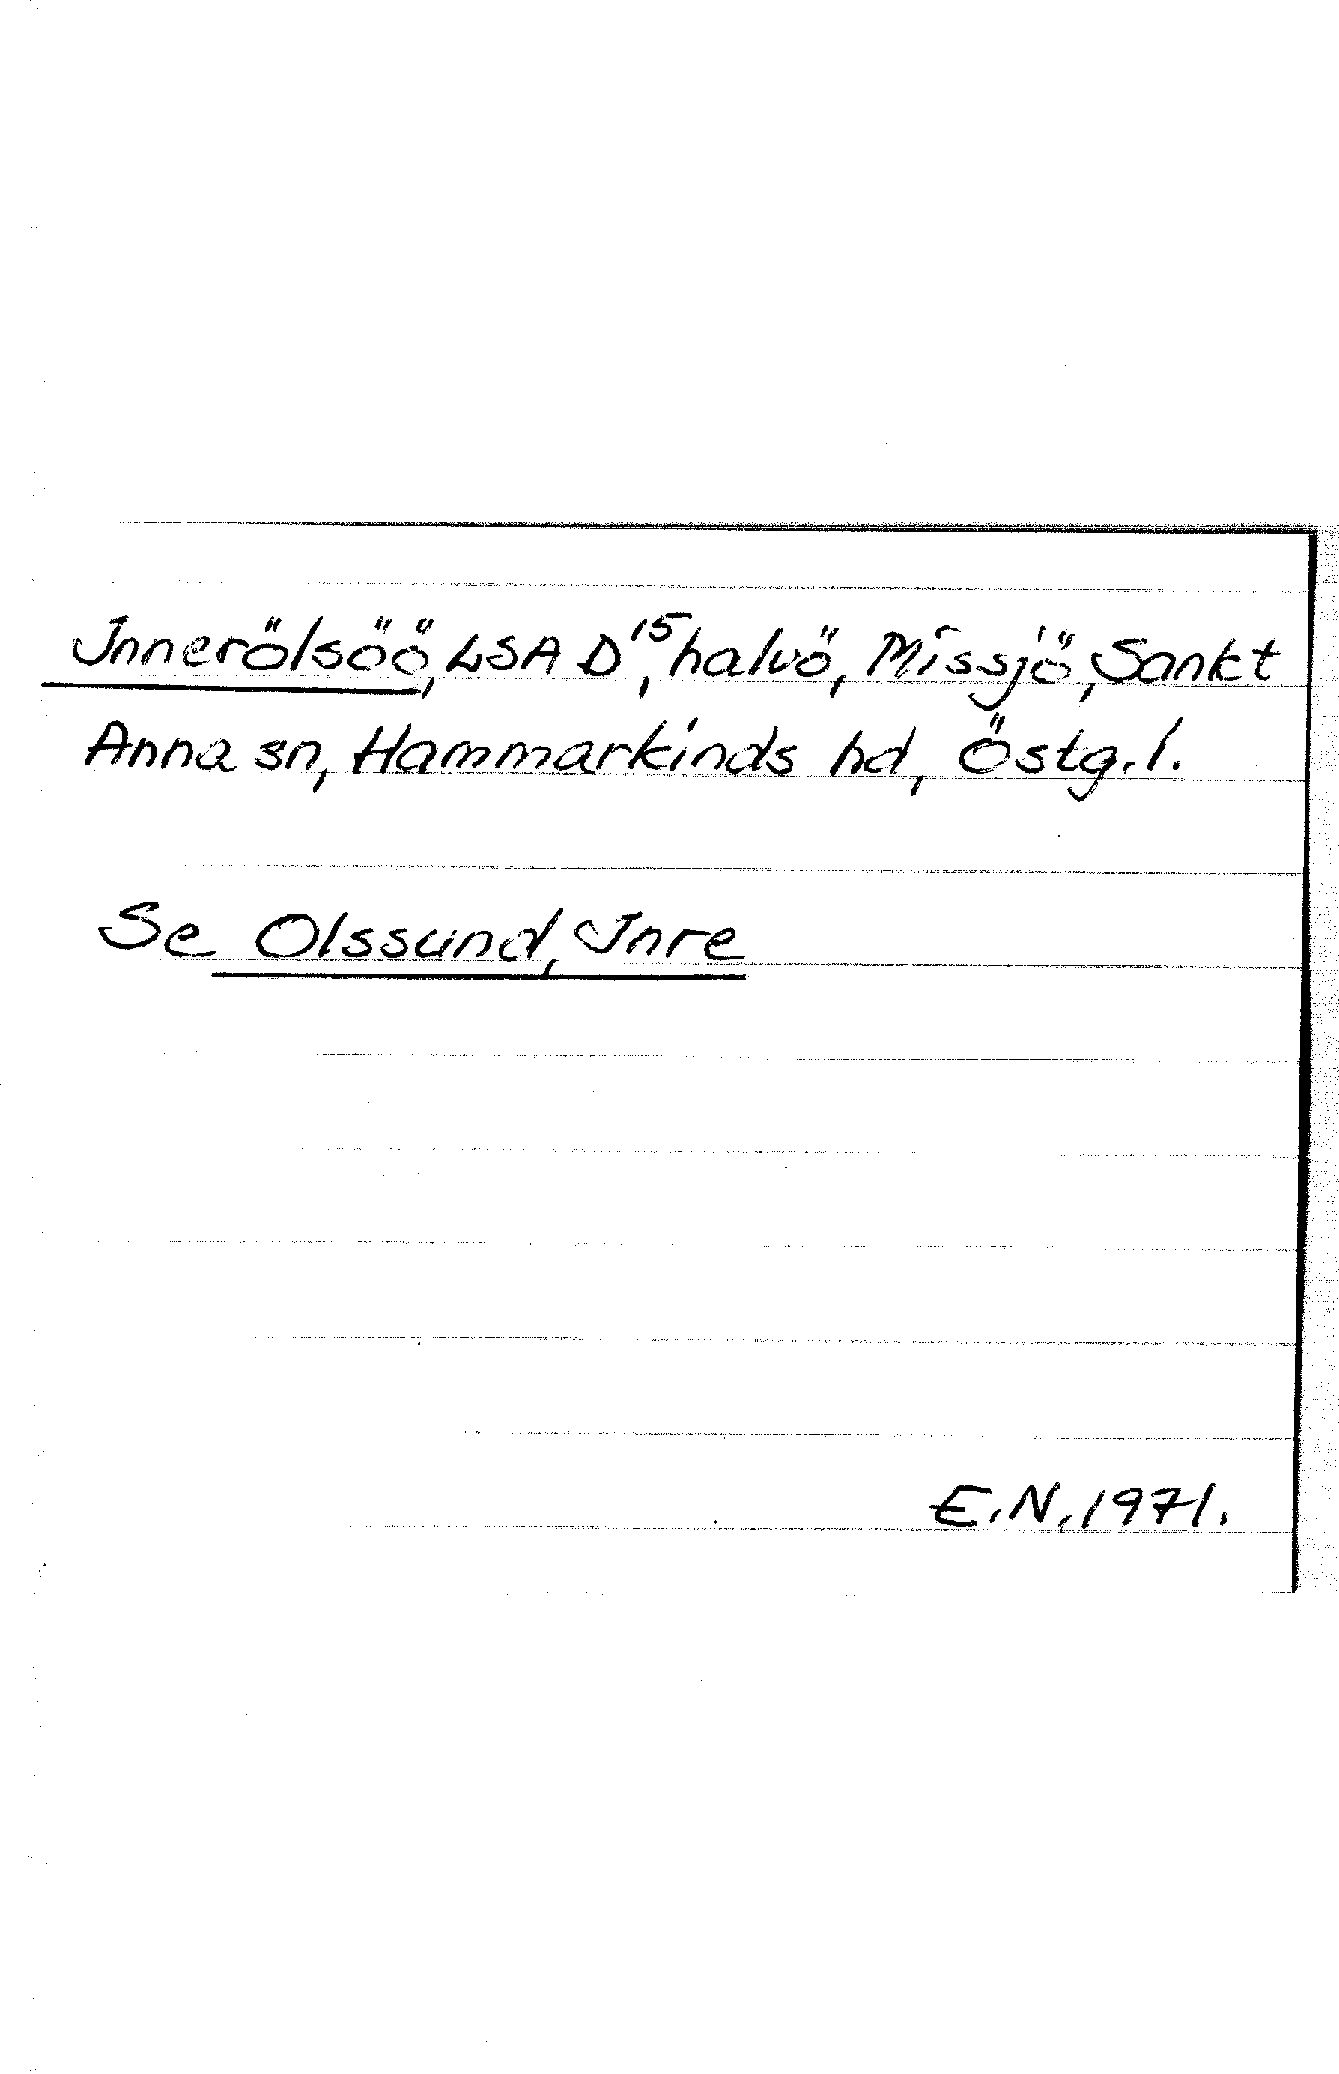 Innerölsöö, LSA D¹⁵, halvö, Missjö, Sankt
Anna sn, Hammarkinds hd, Östg.l.
Se Olssund, Inre
E.N. 1971.